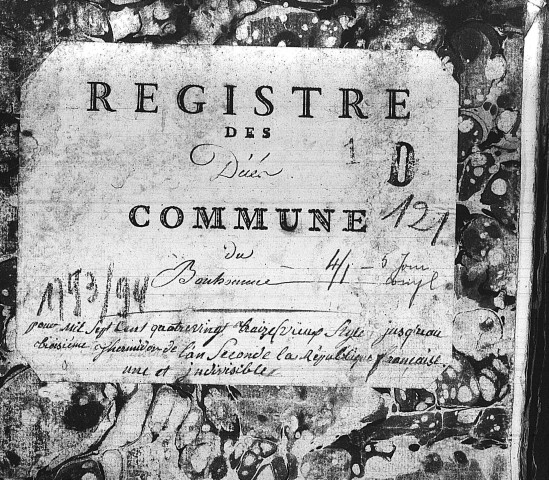 REGISTRE
DES
Décès 1 D
COMMUNE 121
du
4/1 - 5 jour
1793/94
pour mil sept cent quatrevingt traize (vieux style) jusqu'au
troisième Thermidor de l'an Seconde la République française,
une et indivisible